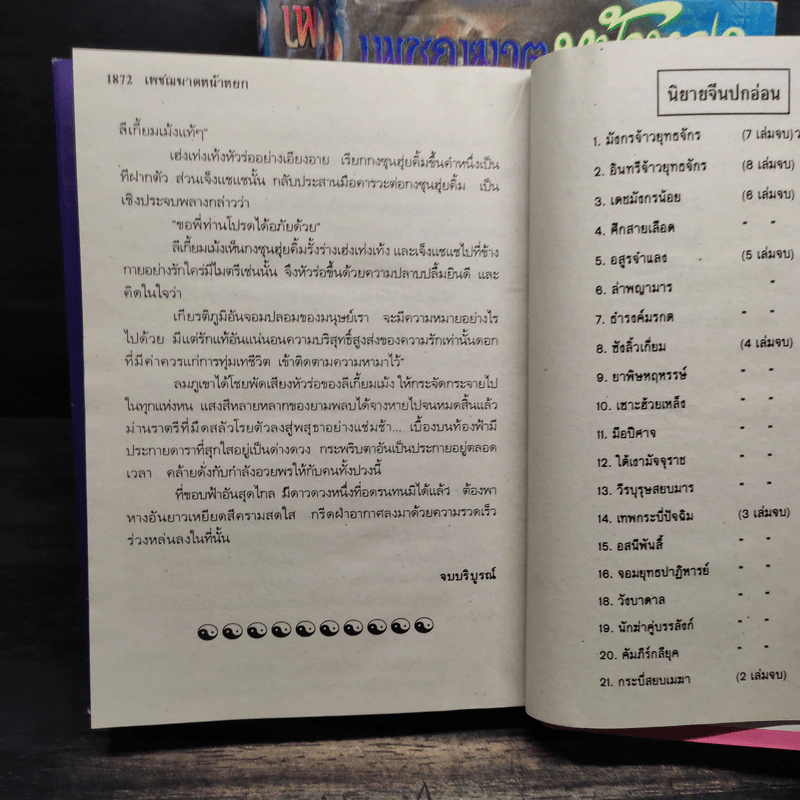 เพชฌฆาตหน้าหยก
1872 เพชฌฆาตหน้าหยก
ลีเกี้ยมเม้งแท้ๆ"
เฮ่งเท่งเท้งหัวร่ออย่างเอียงอาย เรียกกงซุนฮุ่ยคิ้มขึ้นคำหนึ่งเป็น
ทีฝากตัว ส่วนเจ็งแชแชนั้น กลับประสานมือคารวะต่อกงซุนฮุ่ยคิ้ม เป็น
เชิงประจบพลางกล่าวว่า
"ขอพี่ท่านโปรดได้อภัยด้วย"
ลีเกี้ยมเม้งเห็นกงซุนฮุ่ยคิ้มรั้งร่างเฮ่งเท่งเท้ง และเจ็งแชแชไปที่ข้าง
กายอย่างรักใคร่มีไมตรีเช่นนั้น จึงหัวร่อขึ้นด้วยความปลาบปลื้มยินดี และ
คิดในใจว่า
เกียรติภูมิอันจอมปลอมของมนุษย์เรา จะมีความหมายอย่างไร
ไปด้วย มีแต่รักแท้อันแน่นอนความบริสุทธิ์สูงส่งของความรักเท่านั้นดอก
ที่มีค่าควรแก่การทุ่มเทชีวิต เข้าติดตามความหามาไว้"
ลมภูเขาได้โชยพัดเสียงหัวร่อของลีเกี้ยมเม้ง ให้กระจัดกระจายไป
ในทุกแห่งหน แสงสีหลายหลากของยามพลบได้จางหายไปจนหมดสิ้นแล้ว
ม่านราตรีที่มืดสลัวโรยตัวลงสู่พสุธาอย่างแช่มช้า... เบื้องบนท้องฟ้ามี
ประกายดาราที่สุกใสอยู่เป็นต่างดวง กระพริบตาอันเป็นประกายอยู่ตลอด
เวลา คล้ายดั่งกับกำลังอวยพรให้กับคนทั้งปวงนี้
ที่ขอบฟ้าอันสุดไกล มีดาวดวงหนึ่งที่อดรนทนมิได้แล้ว ต้องพา
หางอันยาวเหยียดสีครามสดใส กรีดฝ่าอากาศลงมาด้วยความรวดเร็ว
ร่วงหล่นลงในที่นั้น
จบบริบูรณ์
นิยายจีนปกอ่อน
1. มังกรจ้าวยุทธจักร (7 เล่มจบ)
2. อินทรีจ้าวยุทธจักร (8 เล่มจบ)
3. เดชมังกรน้อย (6 เล่มจบ)
4. ศึกสายเลือด " "
5. อสูรจำแลง (5 เล่มจบ)
6. ล่าพญามาร "
7. ธำรงค์มรกต "
8. ซังลิ้วเกี่ยม (4 เล่มจบ)
9. ยาพิษหฤหรรษ์ " "
10. เซาะฮ้วยเหล็ง " "
11. มือปิศาจ " "
12. ไต้เงามัจจุราช " "
13. วีรบุรุษสยบมาร " "
14. เทพกระบี่ปัจฉิม (3 เล่มจบ)
15. อสนีพันลี้ " "
16. จอมยุทธปาฏิหารย์ " "
18. วังบาดาล " "
19. นักฆ่าคู่บรรลังก์ " "
20. คัมภีร์กลียุค " "
21. กระบี่สยบเมฆา (2 เล่มจบ)